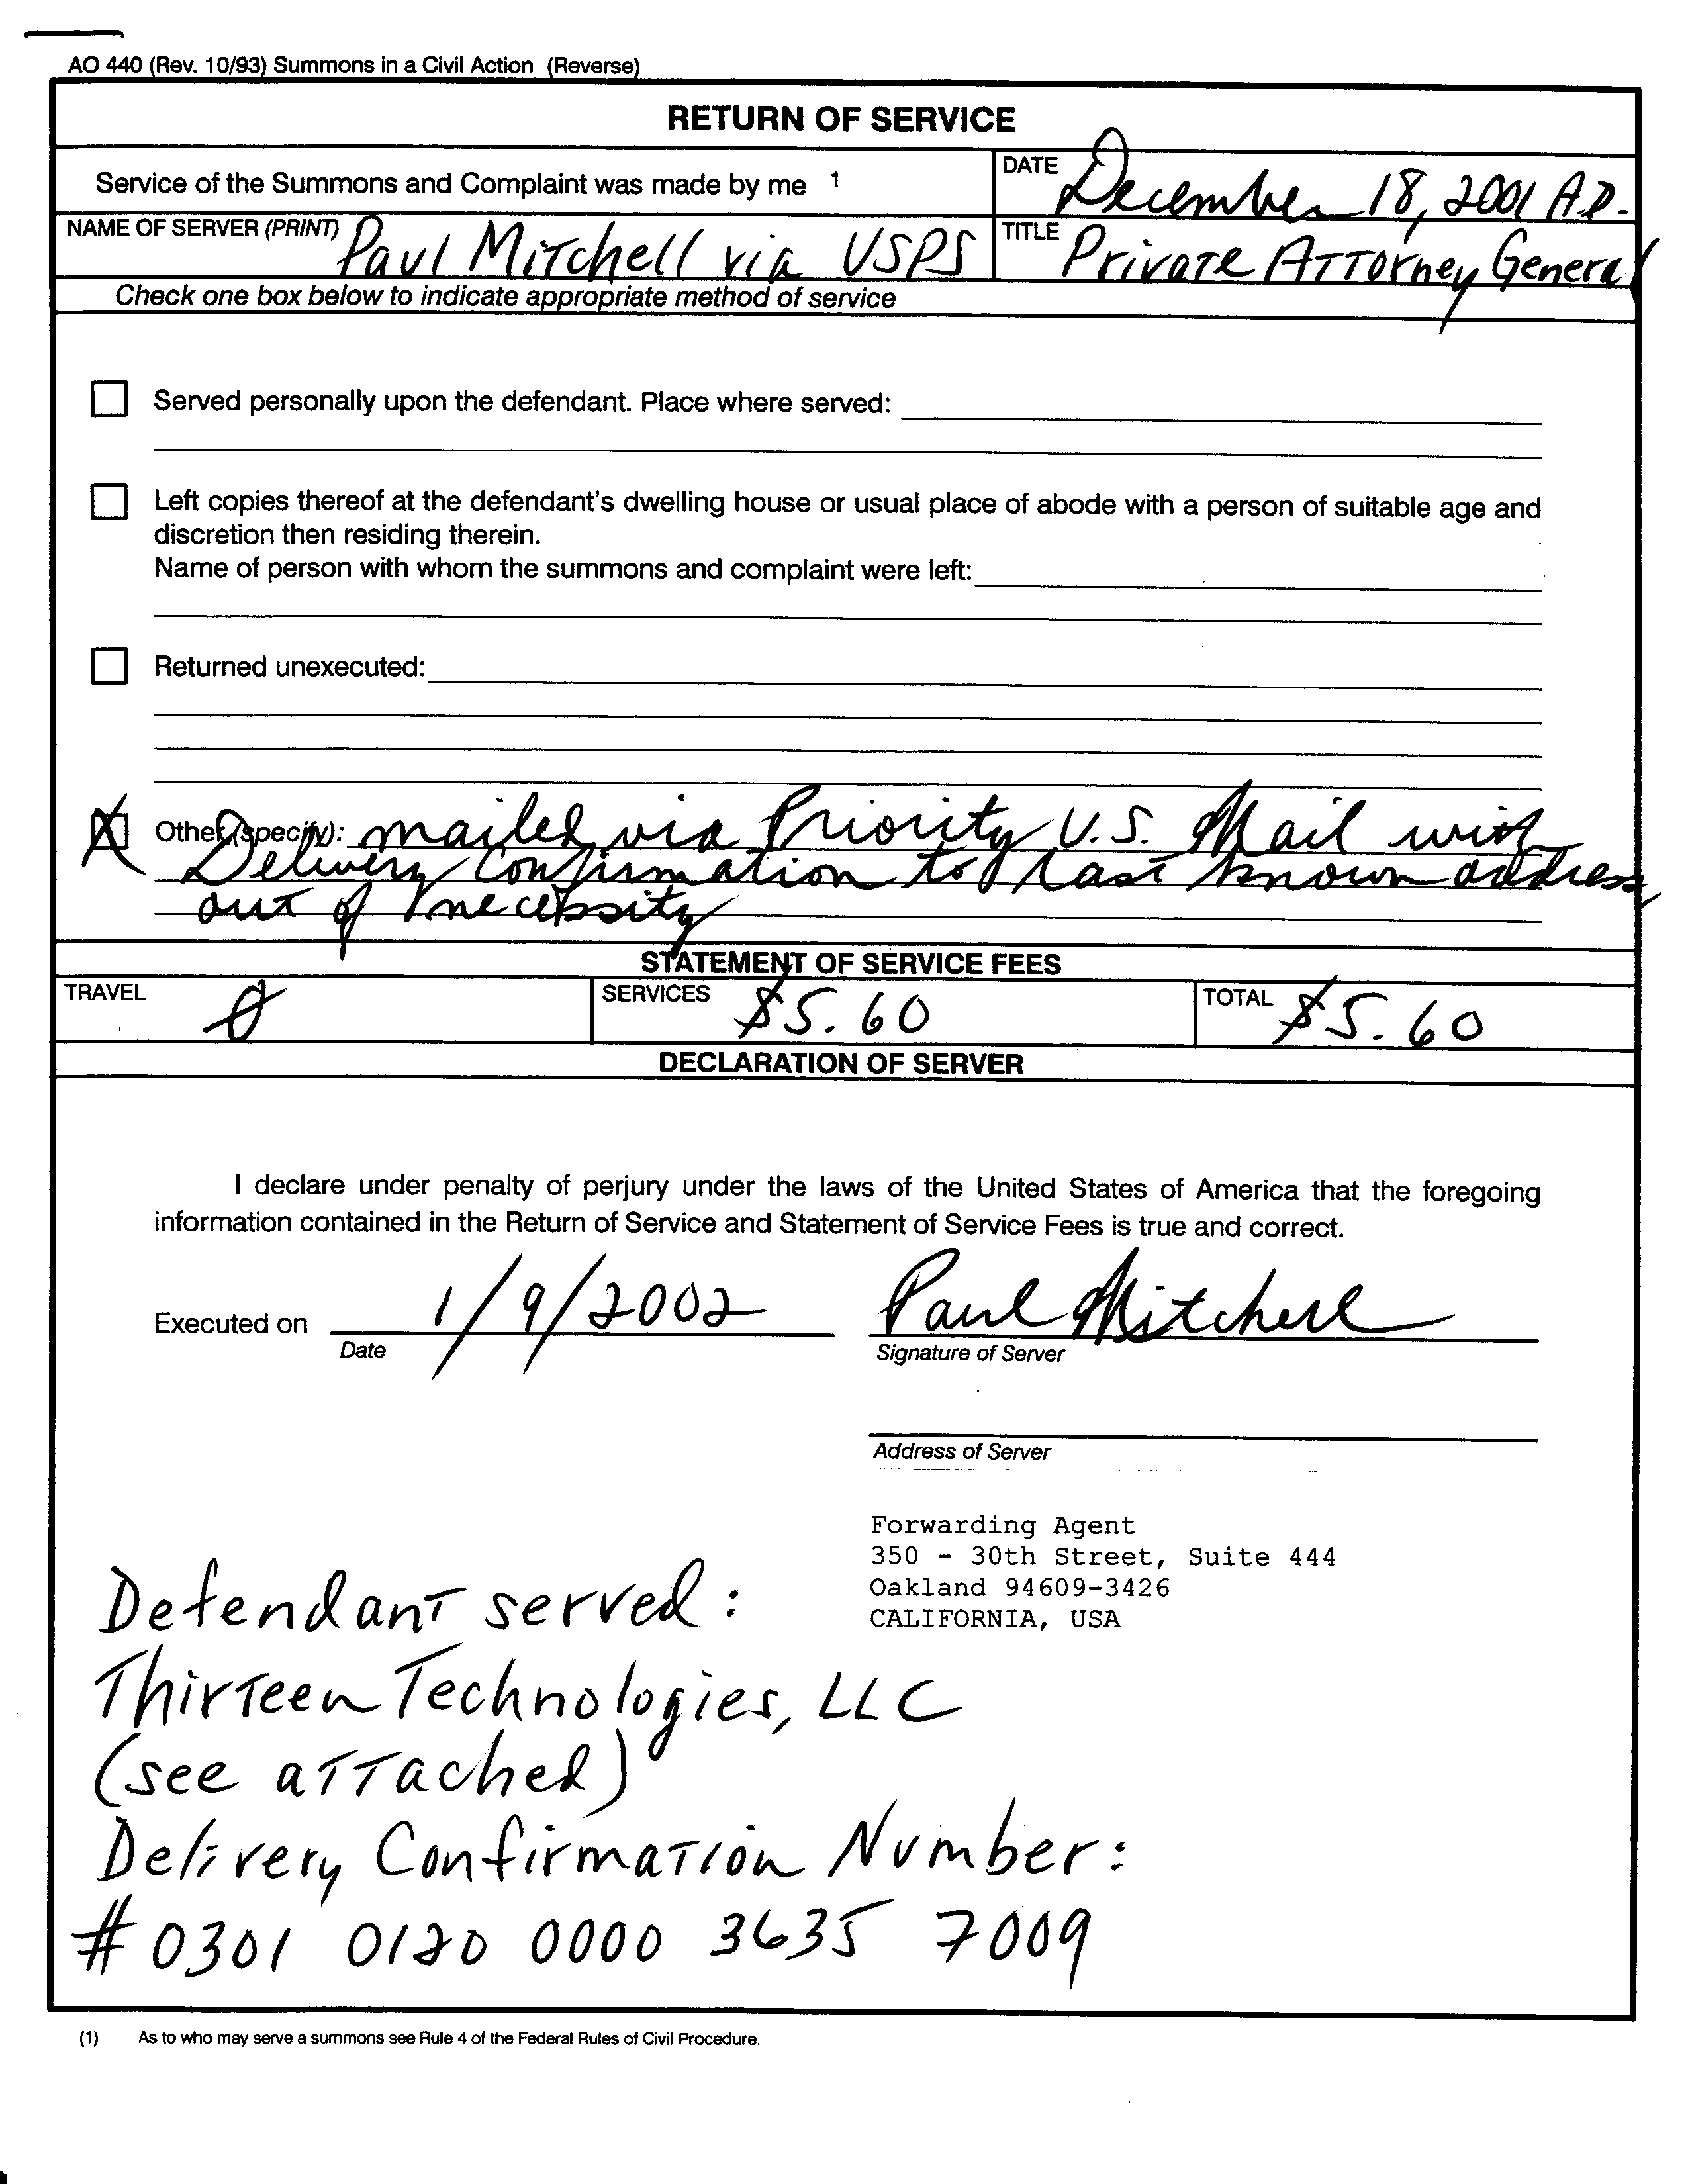 AO 440 (Rev. 10/93) Summons in a Civil Action (Reverse)
RETURN OF SERVICE
Service of the Summons and Complaint was made by me 1
DATE December 18, 2001 A.D.
NAME OF SERVER (PRINT) Paul Mitchell via USPS
TITLE Private Attorney General
Check one box below to indicate appropriate method of service
Served personally upon the defendant. Place where served:
Left copies thereof at the defendant's dwelling house or usual place of abode with a person of suitable age and
discretion then residing therein.
Name of person with whom the summons and complaint were left:
Returned unexecuted:
Other (specify): mailed via Priority U.S. Mail with
Delivery Confirmation to last known address
out of necessity
STATEMENT OF SERVICE FEES
TRAVEL 0
SERVICES $5.60
TOTAL $5.60
DECLARATION OF SERVER
I declare under penalty of perjury under the laws of the United States of America that the foregoing
information contained in the Return of Service and Statement of Service Fees is true and correct.
Executed on 1/9/2002 Paul Mitchell
Date Signature of Server
Address of Server
Forwarding Agent
350 - 30th Street, Suite 444
Oakland 94609-3426
CALIFORNIA, USA
Defendant served:
Thirteen Technologies, LLC
(see attached)
Delivery Confirmation Number:
# 0301 0120 0000 3635 7009
(1) As to who may serve a summons see Rule 4 of the Federal Rules of Civil Procedure.